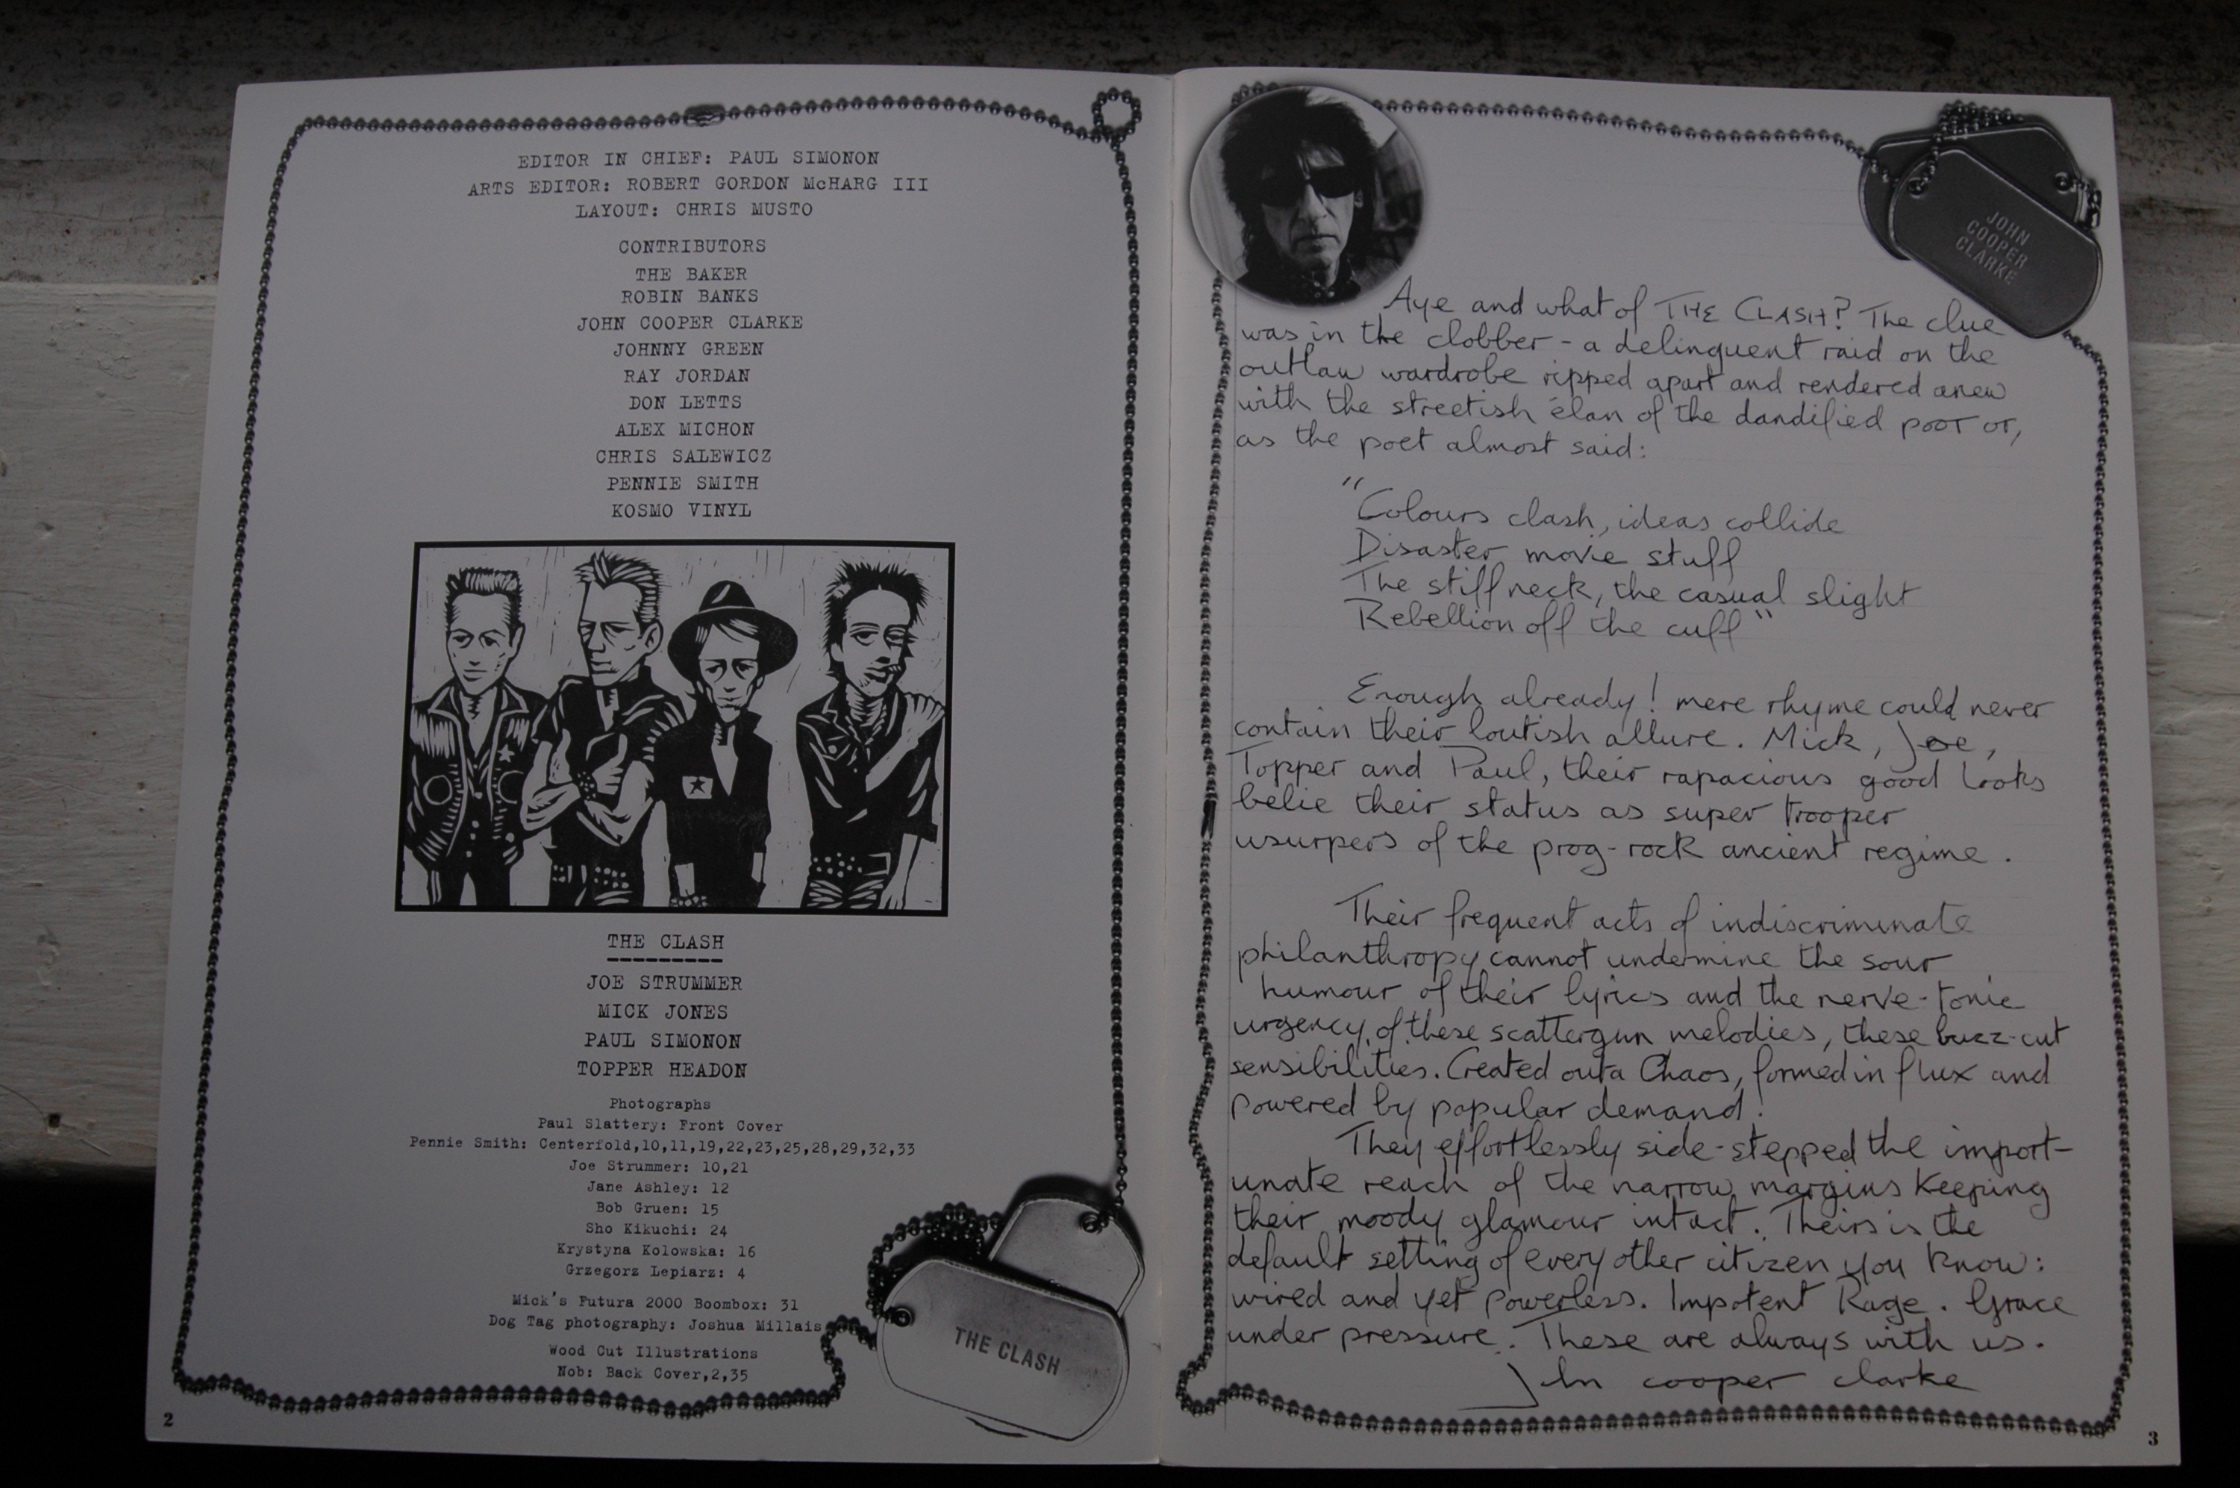 EDITOR IN CHIEF: PAUL SIMONON
ARTS EDITOR: ROBERT GORDON McHARG III
LAYOUT: CHRIS MUSTO
CONTRIBUTORS
THE BAKER
ROBIN BANKS
JOHN COOPER CLARKE
JOHNNY GREEN
RAY JORDAN
DON LETTS
ALEX MICHON
CHRIS SALEWICZ
PENNIE SMITH
KOSMO VINYL
THE CLASH
JOE STRUMMER
MICK JONES
PAUL SIMONON
TOPPER HEADON
Photographs
Paul Slattery: Front Cover
Pennie Smith: Centerfold,10,11,19,22,23,25,28,29,32,33
Joe Strummer: 10,21
Jane Ashley: 12
Bob Gruen: 15
Sho Kikuchi: 24
Krystyna Kolowska: 16
Grzegorz Lepiarz: 4
Mick's Futura 2000 Boombox: 31
Dog Tag photography: Joshua Millais
Wood Cut Illustrations
Nob: Back Cover,2,35
THE CLASH
2
JOHN
COOPER
CLARKE
Aye and what of THE CLASH? The clue
was in the clobber - a delinquent raid on the
outlaw wardrobe ripped apart and rendered anew
with the streetish élan of the dandified poor or,
as the poet almost said:
"Colours clash, ideas collide
Disaster movie stuff
The stiff neck, the casual slight
Rebellion off the cuff"
Enough already! mere rhyme could never
contain their loutish allure. Mick, Joe,
Topper and Paul, their rapacious good looks
belie their status as super trooper
usurpers of the prog-rock ancient regime.
Their frequent acts of indiscriminate
philanthropy cannot undermine the sour
humour of their lyrics and the nerve-tonic
urgency of these scattergun melodies, these buzz-cut
sensibilities. Created outa Chaos, formed in flux and
powered by popular demand.
They effortlessly side-stepped the import-
unate reach of the narrow margins keeping
their moody glamour intact. Theirs is the
default setting of every other citizen you know:
wired and yet powerless. Impotent Rage. Grace
under pressure. These are always with us.
John cooper clarke
3